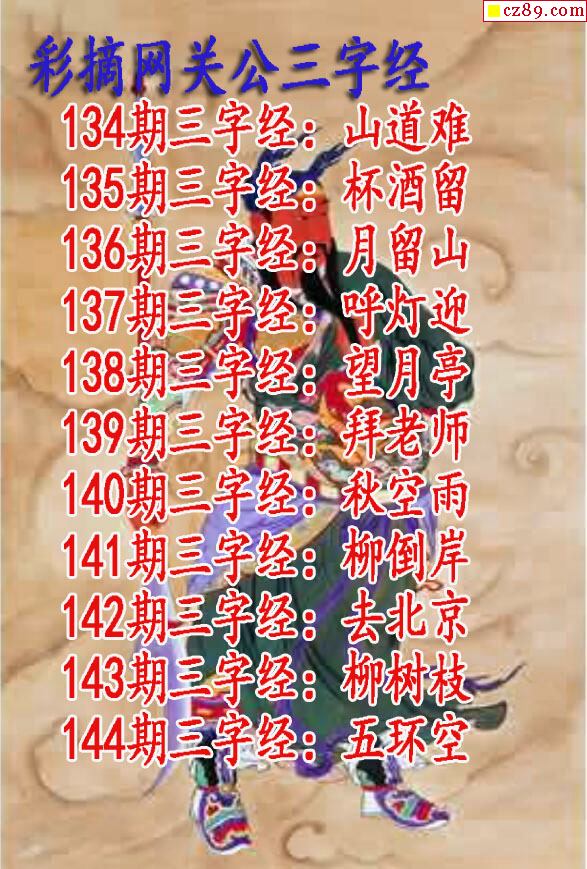 cz89.com
彩摘网关公三字经
134期三字经：山道难
135期三字经：杯酒留
136期三字经：月留山
137期三字经：呼灯迎
138期三字经：望月亭
139期三字经：拜老师
140期三字经：秋空雨
141期三字经：柳倒岸
142期三字经：去北京
143期三字经：柳树枝
144期三字经：五环空